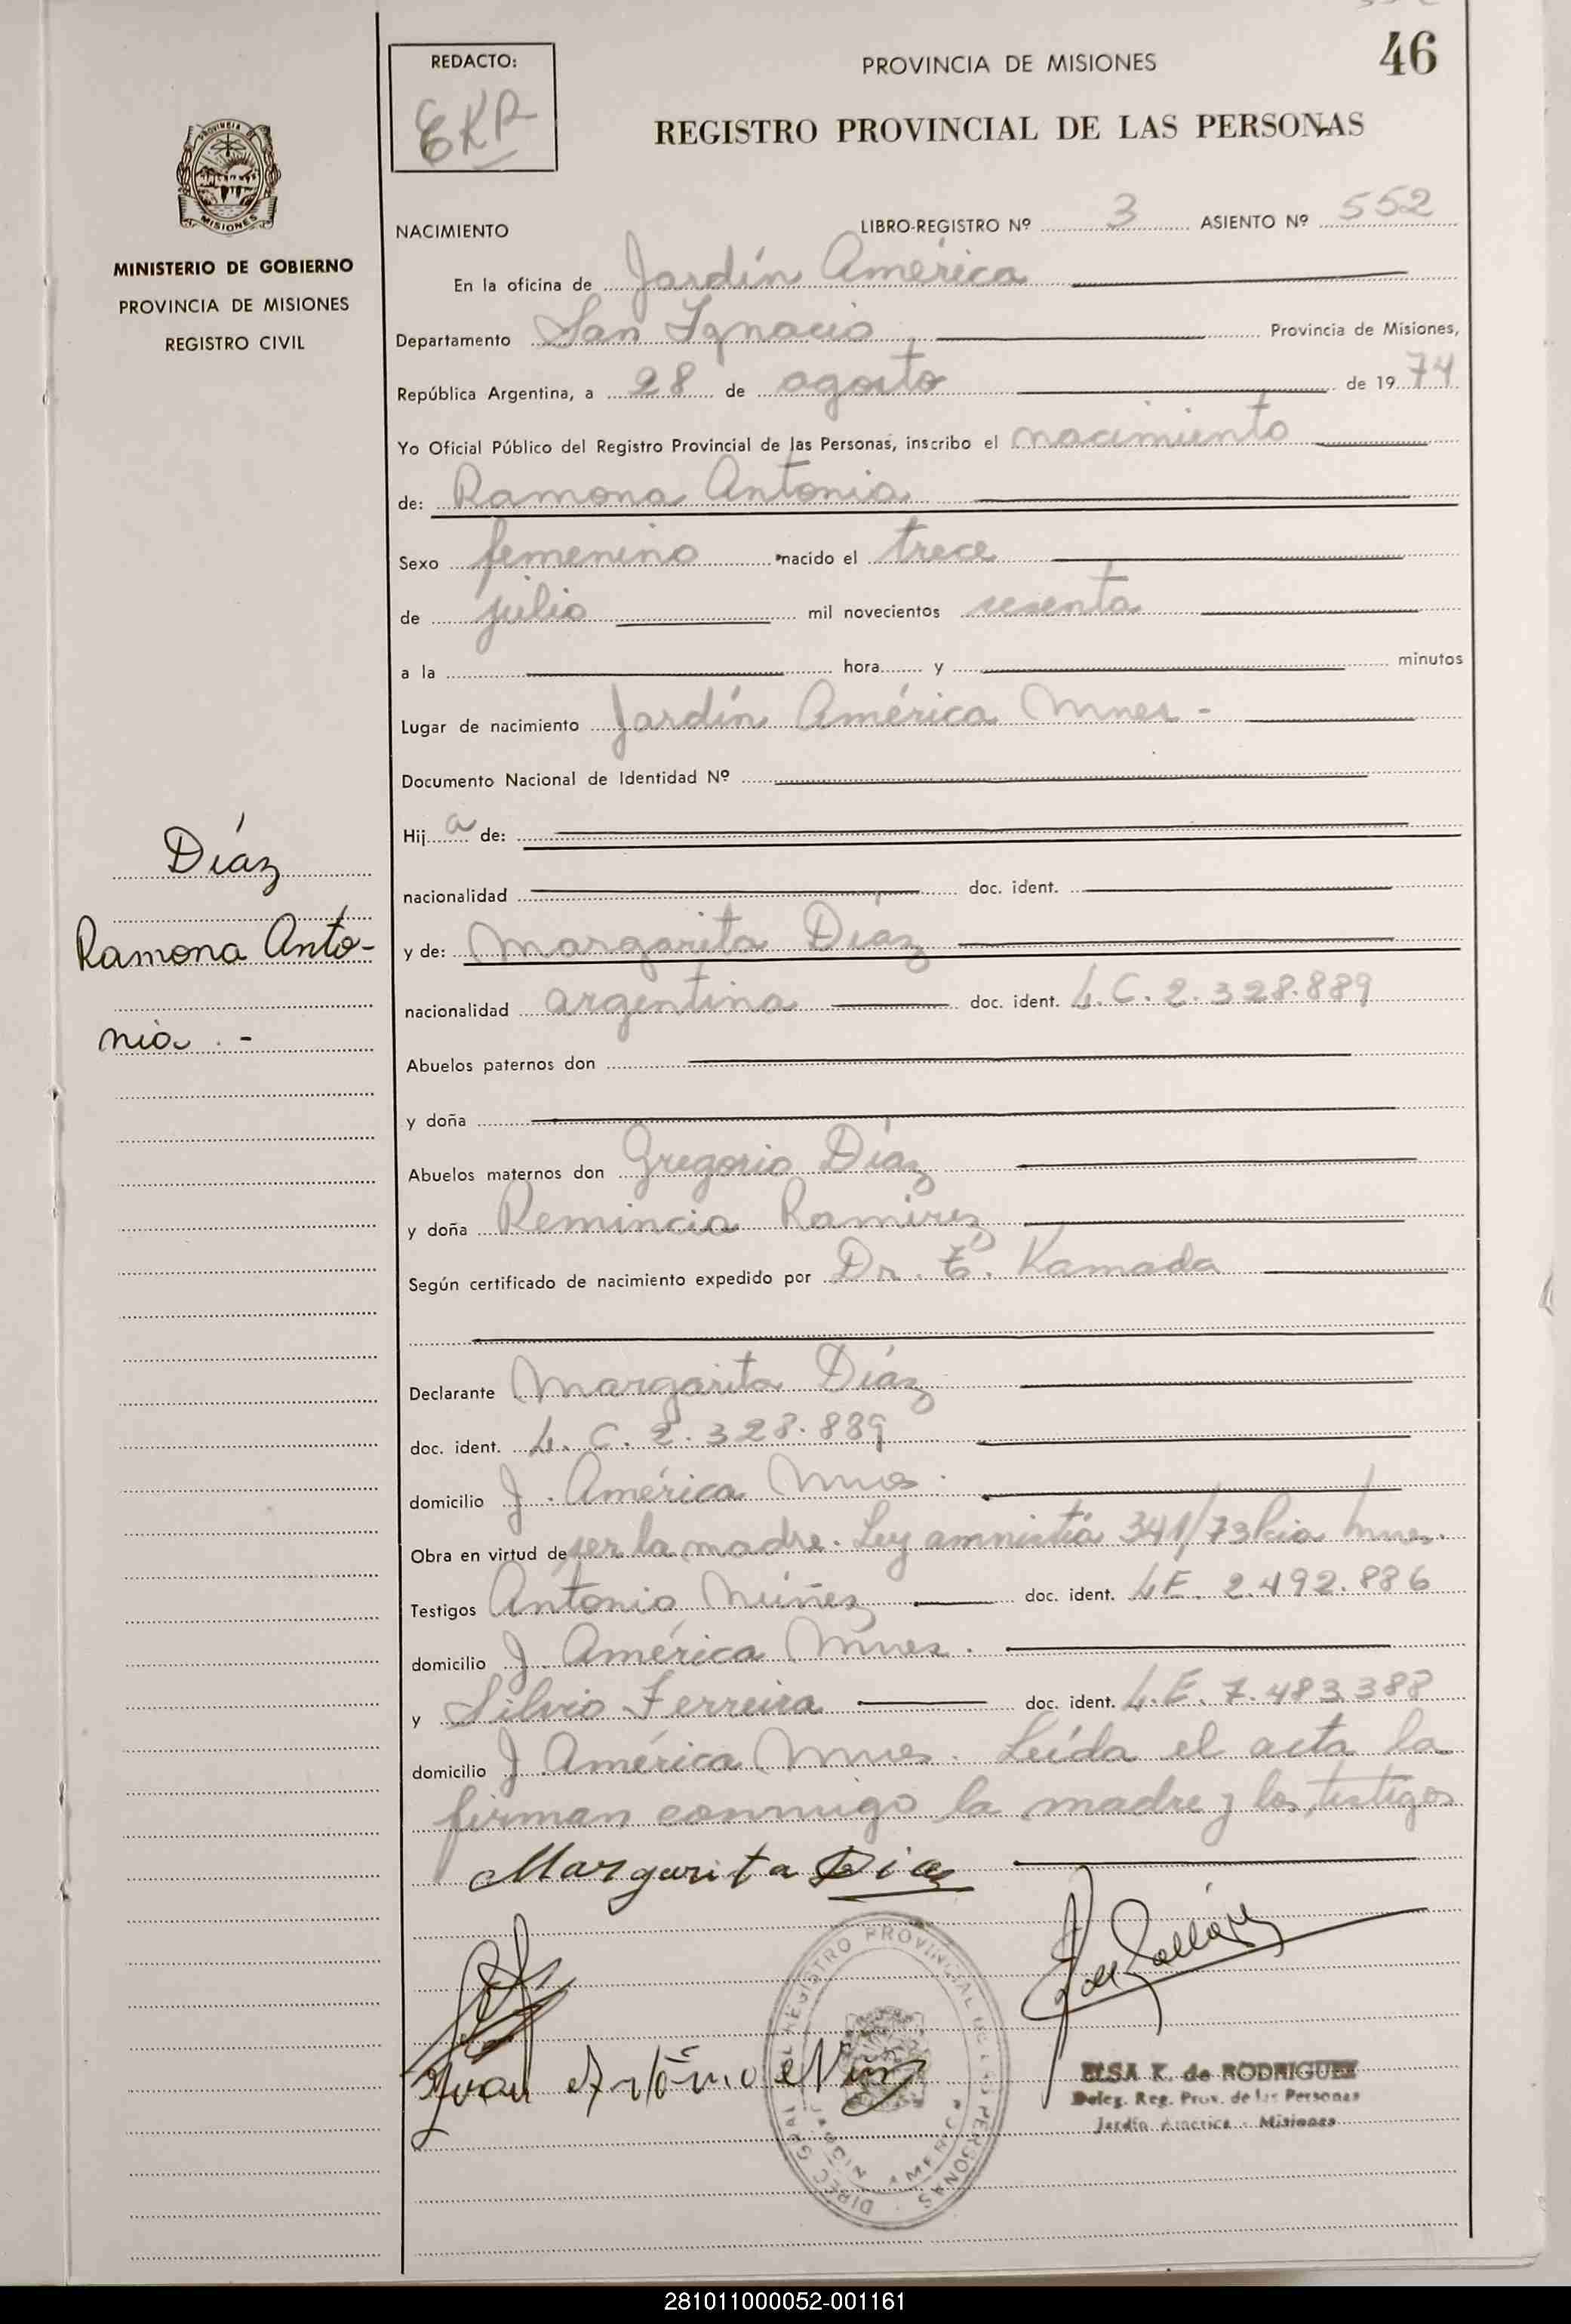 46
REDACTO:
EKR
PROVINCIA DE MISIONES
REGISTRO PROVINCIAL DE LAS PERSONAS
PROVINCIA DE
MISIONES
MINISTERIO DE GOBIERNO
PROVINCIA DE MISIONES
REGISTRO CIVIL
NACIMIENTO LIBRO-REGISTRO Nº 3 ASIENTO Nº 552
En la oficina de Jardín América
Departamento San Ignacio Provincia de Misiones,
República Argentina, a 28 de agosto de 1974
Yo Oficial Público del Registro Provincial de las Personas, inscribo el nacimiento
de: Ramona Antonia
Sexo femenino nacido el trece
de julio mil novecientos sesenta
a la hora y minutos
Lugar de nacimiento Jardín América Mnes -
Documento Nacional de Identidad Nº
Hija de:
nacionalidad doc. ident.
y de: Margarita Díaz
nacionalidad argentina doc. ident. L.C. 2.328.889
Abuelos paternos don
y doña
Abuelos maternos don Gregorio Díaz
y doña Remincia Ramirez
Según certificado de nacimiento expedido por Dr. E. Kamada
Declarante Margarita Díaz
doc. ident. L. C. 2.328.889
domicilio J. América Mnes.
Obra en virtud de ser la madre. Ley amnistía 341/73 Pcia Mnes.
Testigos Antonio Núñez doc. ident. L.E. 2.492.886
domicilio J. América Mnes.
y Silvio Ferreira doc. ident. L.E. 7.483.388
domicilio J América Mnes. Leída el acta la
firman conmigo la madre y los testigos
Díaz
Ramona Anto-
nia . -
Margarita Diaz
Juan Antonio Nuñ
DIREC. GRAL. REGISTRO PROVINCIAL DE LAS PERSONAS
JARDIN AMERICA
ELSA K. de RODRIGUEZ
Deleg. Reg. Prov. de las Personas
Jardín América - Misiones
281011000052-001161